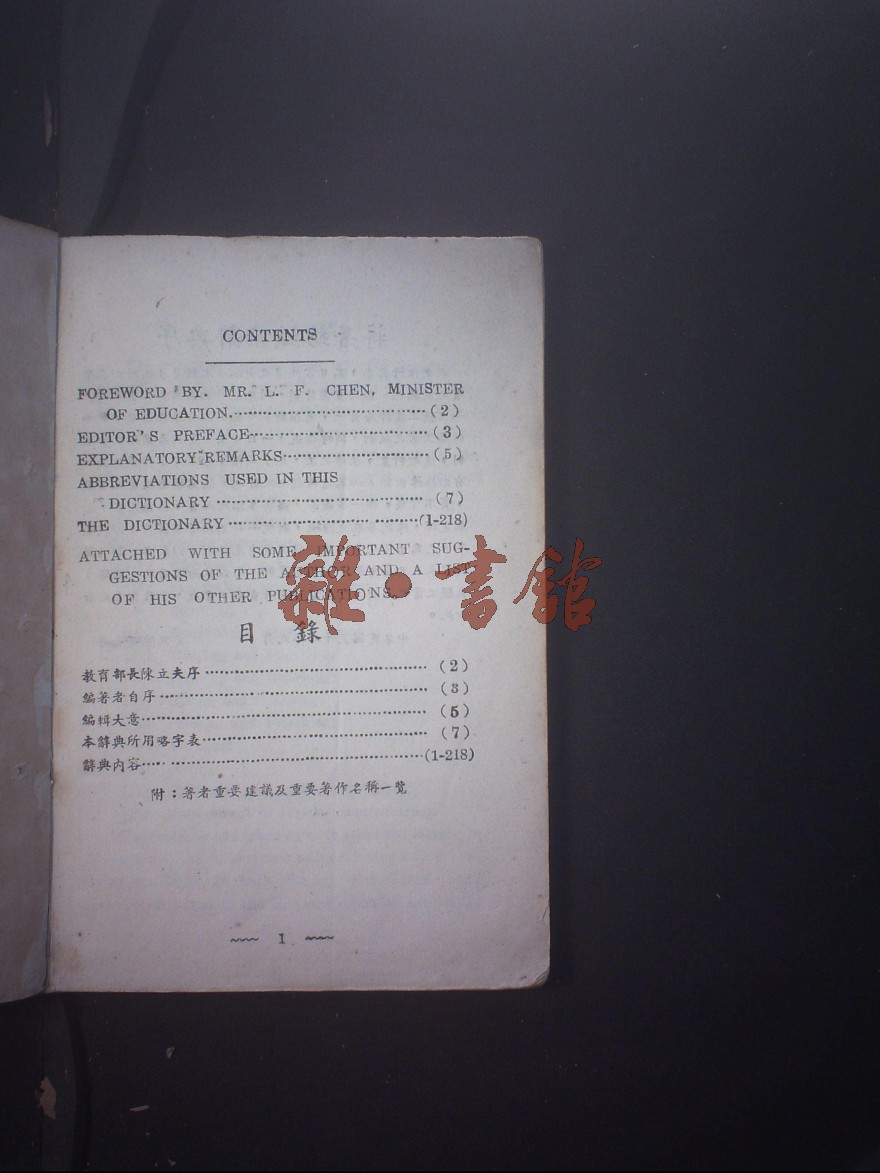 CONTENTS
FOREWORD BY. MR. L. F. CHEN, MINISTER
OF EDUCATION.································(2)
EDITOR'S PREFACE································(3)
EXPLANATORY REMARKS·························(5)
ABBREVIATIONS USED IN THIS
DICTIONARY ···································(7)
THE DICTIONARY ································(1-218)
ATTACHED WITH SOME IMPORTANT SUG-
GESTIONS OF THE AUTHOR AND A LIST
OF HIS OTHER PUBLICATIONS.
雜·書館
目錄
教育部長陳立夫序······································(2)
編著者自序··············································(3)
編輯大意·················································(5)
本辭典所用略字表······································(7)
辭典內容·················································(1-218)
附：著者重要建議及重要著作名稱一覽
~~~ 1 ~~~